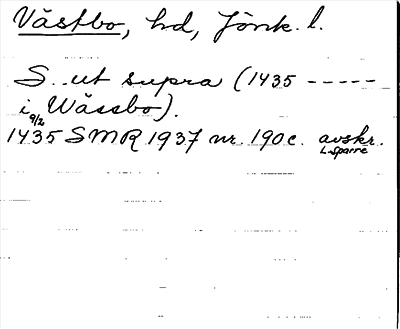 Västbo, hd, Jönk. l.
S. ut supra (1435 -----
i Wässbo).
9/2
1435 SMR 1937 nr. 190c. avskr.
L. Sparre